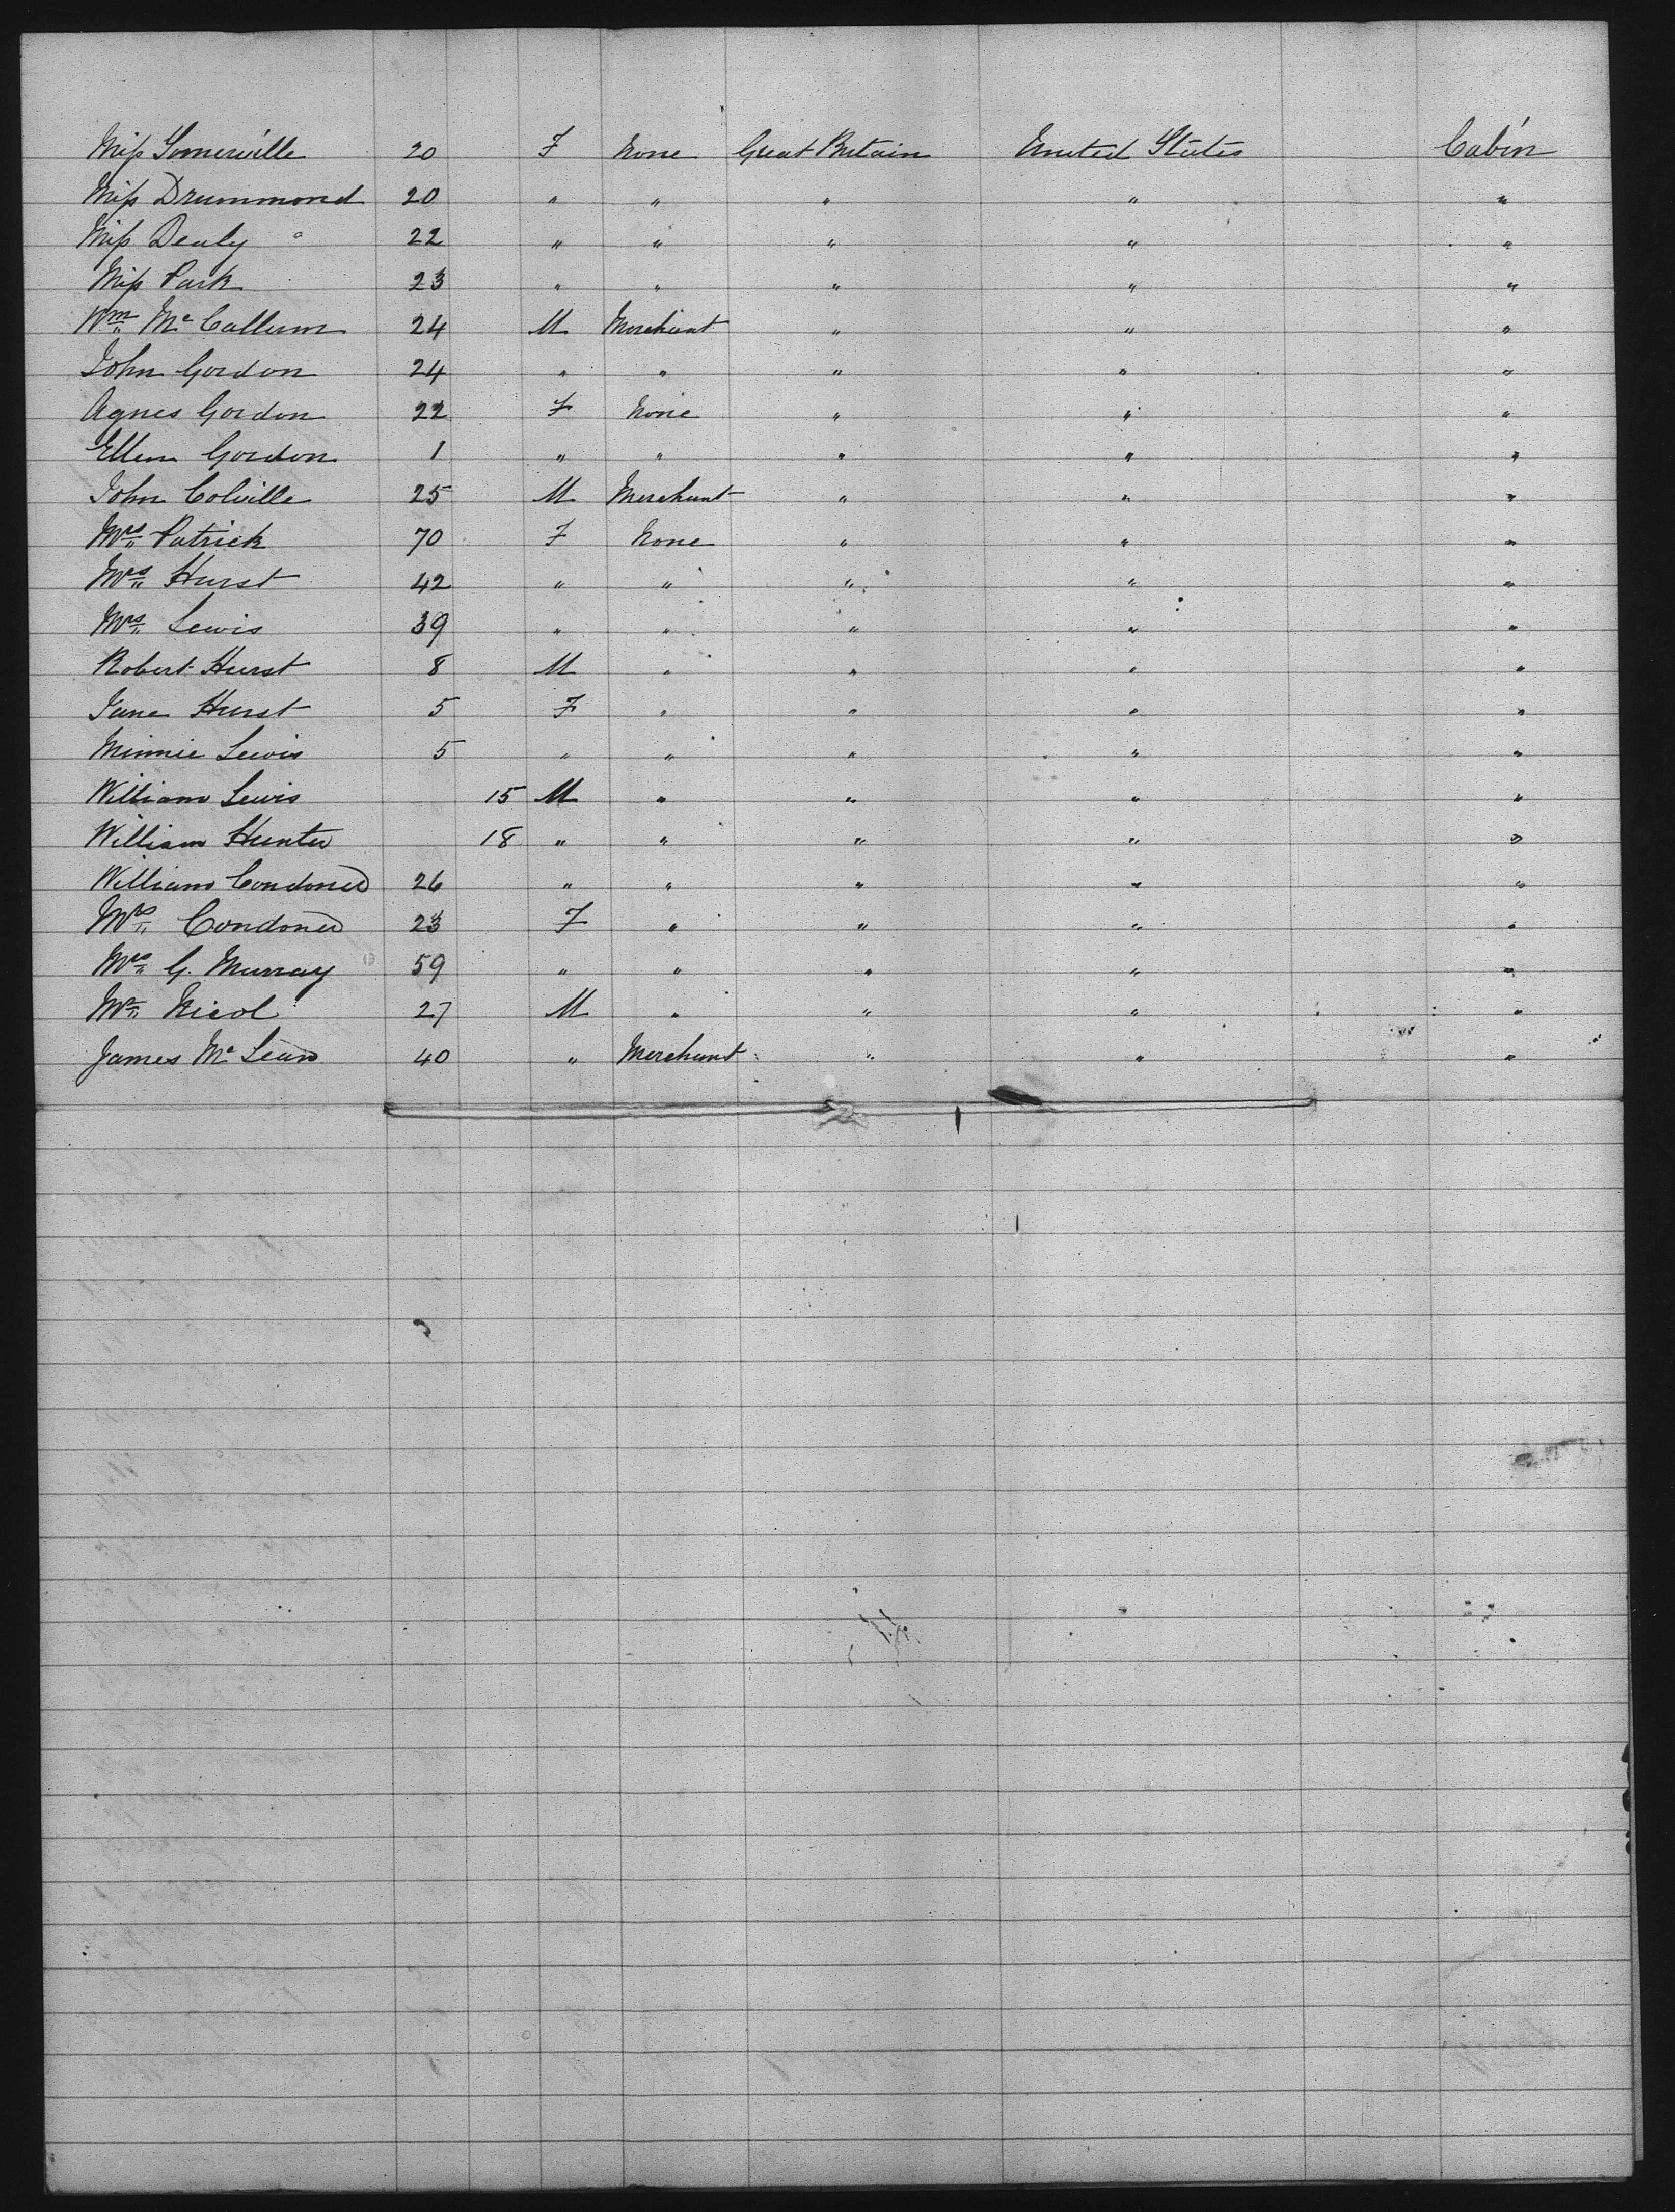 Miss Somerville 20 F None Great Britain United States Cabin
Miss Drummond 20 " " " " "
Miss Dealy 22 " " " " "
Miss Park 23 " " " " "
Wm Mc Callum 24 M Merchant " " "
John Gordon 24 " " " " "
Agnes Gordon 22 F None " " "
Ellen Gordon 1 " " " " "
John Colville 25 M Merchant " " "
Mrs Patrick 70 F None " " "
Mrs Hurst 42 " " " " "
Mrs Lewis 39 " " " " "
Robert Hurst 8 M " " " "
Jane Hurst 5 F " " " "
Minnie Lewis 5 " " " " "
William Lewis 15 M " " " "
William Hunter 18 " " " " "
William 26 " " " " "
Mrs 23 F " " " "
Mrs G. Murray 59 " " " " "
Mr Nicol 27 M " " " "
James Mc Lean 40 " Merchant " " "